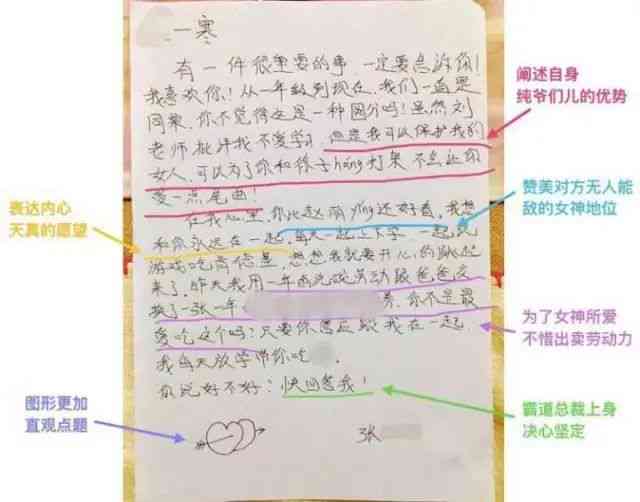 一寒
有一件很重要的事,一定要告诉你!
我喜欢你!从一年级到现在,我们一直是
同桌,你不觉得这是一种园分吗!虽然刘
老师批评我不爱学习,但是我可以保护我的
女人,可以为了你和徐子háng打架,不会让你
受一点尾曲!
在我心里,你比赵丽yǐng还好看,我想
和你永远在一起,每天一起上下学,一起玩
游戏吃肯德基,想想我就要开心的跳起
来了,昨天我用一年的洗碗劳动跟爸爸交
换了一张一年
券,你不是最
爱吃这个吗?只要你愿应跟我在一起,
我每天放学带你吃
你说好不好?快回答我!
张
阐述自身
纯爷们儿的优势
赞美对方无人能
敌的女神地位
表达内心
天真的愿望
为了女神所爱
不惜出卖劳动力
图形更加
直观点题
霸道总裁上身
决心坚定